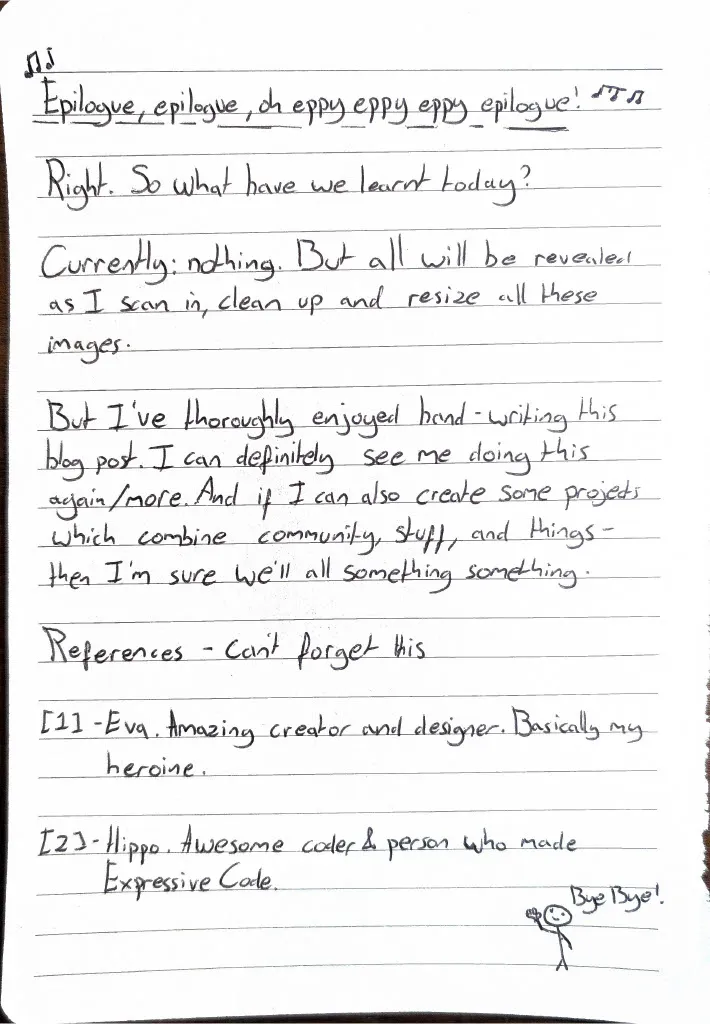 Epilogue, epilogue, oh eppy eppy eppy epilogue!
Right. So what have we learnt today?
Currently: nothing. But all will be revealed
as I scan in, clean up and resize all these
images.
But I've thoroughly enjoyed hand-writing this
blog post. I can definitely see me doing this
again/more. And if I can also create some projects
which combine community, stuff, and things -
then I'm sure we'll all something something.
References - Can't forget this
[1] - Eva. Amazing creator and designer. Basically my
heroine.
[2] - Hippo. Awesome coder & person who made
Expressive Code.
Bye Bye!